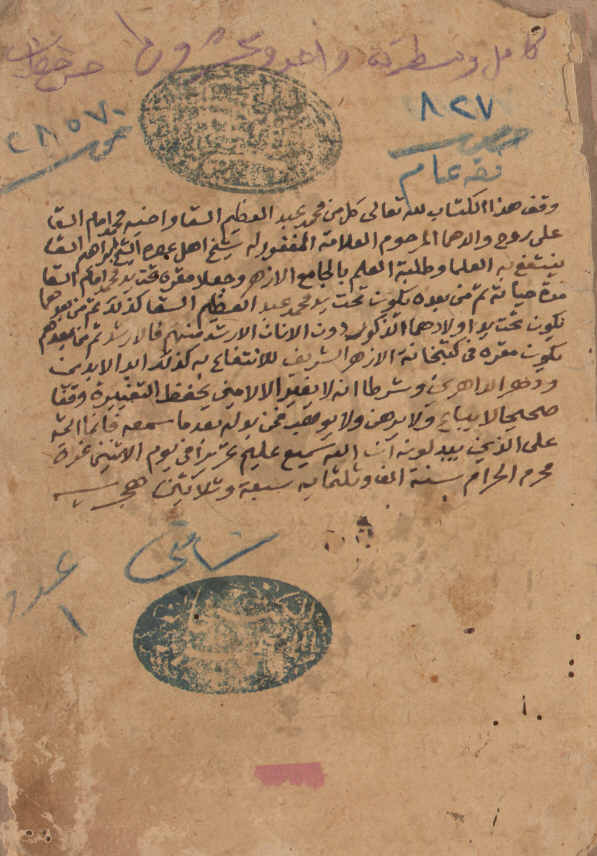 كامل ومسطرته واحد وعشرون
٨٢٧
٢٨٥٧٠
فقه عام
وقف هذا الكتاب لله تعالى كل من محمد عبد العظيم السقا واخيه محمد امام السقا
على روح والدهما المرحوم العلامة المغفور له شيخ اهل عصره الشيخ ابراهيم السقا
لينتفع به العلما وطلبة العلم بالجامع الازهر وجعلا مقره تحت يد محمد امام السقا
مدة حياته ثم من بعده يكون تحت يد محمد عبد العظيم السقا كذلك ثم من بعدهما
يكون تحت يد اولادهما الذكور دون الاناث الارشد منهم فالارشد ثم من بعدهم
يكون مقره فى كتبخانة الازهر الشريف للانتفاع به كذلك ابد الابدين
ودهر الداهرين وشرطا انه لا يغير الا لامين يحفظ التغيير وقفا
صحيحا لا يباع ولا يرهن ولا يوهب فمن بدله بعد ما سمعه فانما اثمه
على الذين يبدلونه ان الله سميع عليم تحريرا فى يوم الاثنين غرة
محرم الحرام سنة الف وثلثمايه سبعة وثلاثين هجريه
شافعى
عدد
١